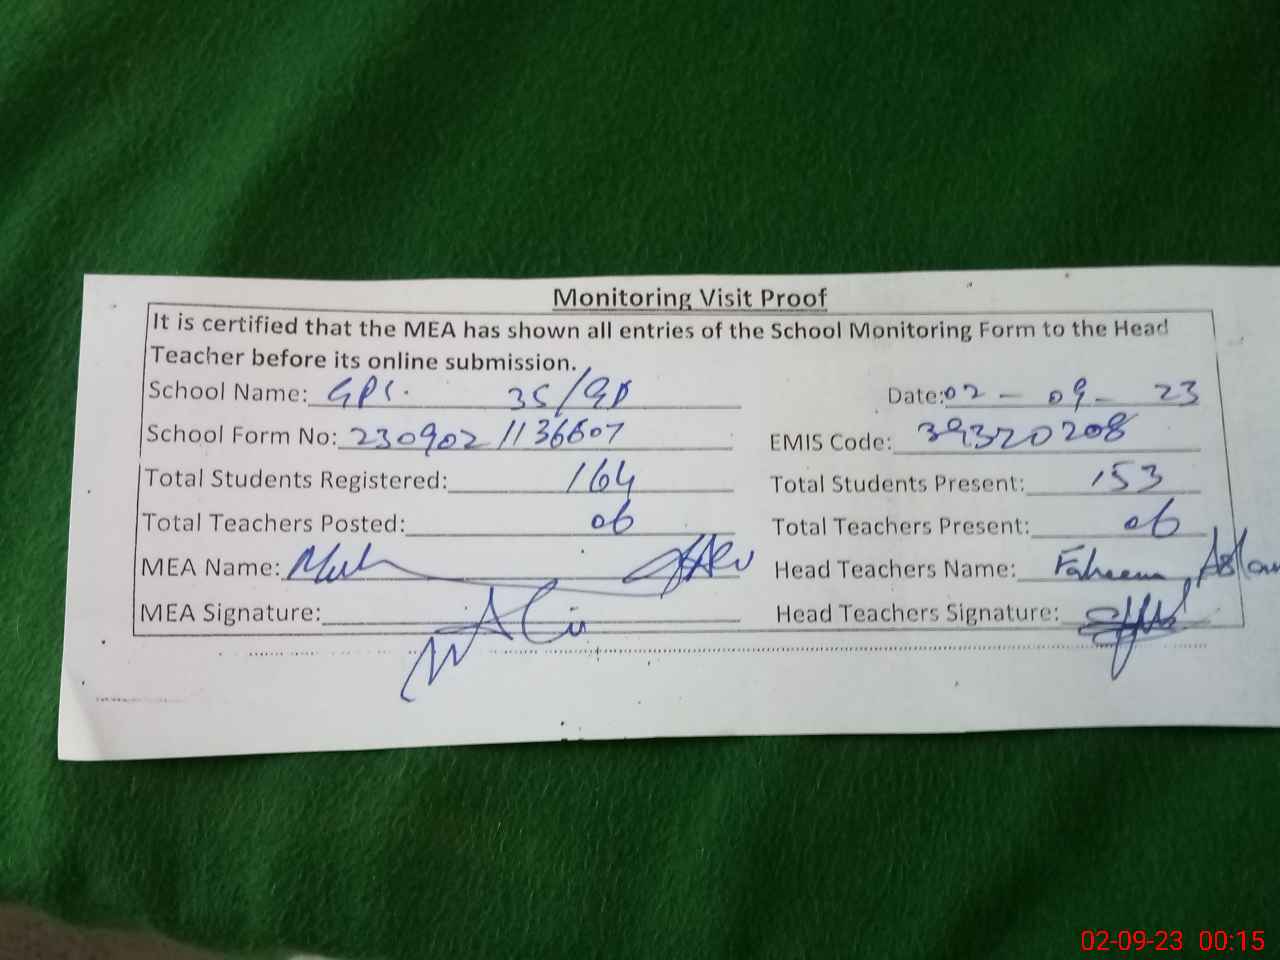 Monitoring Visit Proof
It is certified that the MEA has shown all entries of the School Monitoring Form to the Head
Teacher before its online submission.
School Name: GPS. 35/GD Date: 02 - 09 - 23
School Form No: 230902 1136607 EMIS Code: 39320208
Total Students Registered: 164 Total Students Present: 153
Total Teachers Posted: 06 Total Teachers Present: 06
MEA Name: Head Teachers Name: Faheem Aslam
MEA Signature: Head Teachers Signature:
02-09-23 00:15